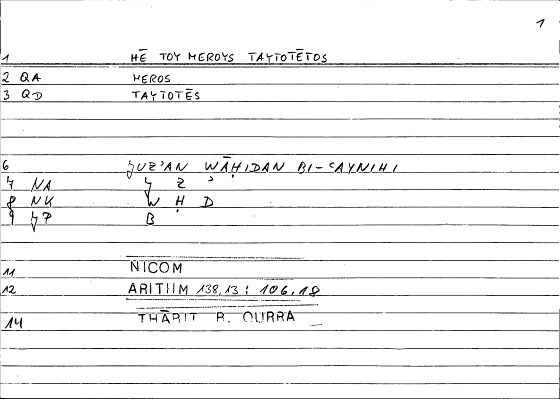 1
1 HĒ TOY MEROYS TAYTOTĒTOS
2 QA MEROS
3 QD TAYTOTĒS
6 ǦUZ'AN WĀḤIDAN BI-ʿAYNIHI
7 NA Ǧ Z '
8 NK W Ḥ D
9 ǦP B
11 NICOM
12 ARITHM 138,13 : 106,18
14 THĀBIT B. QURRA